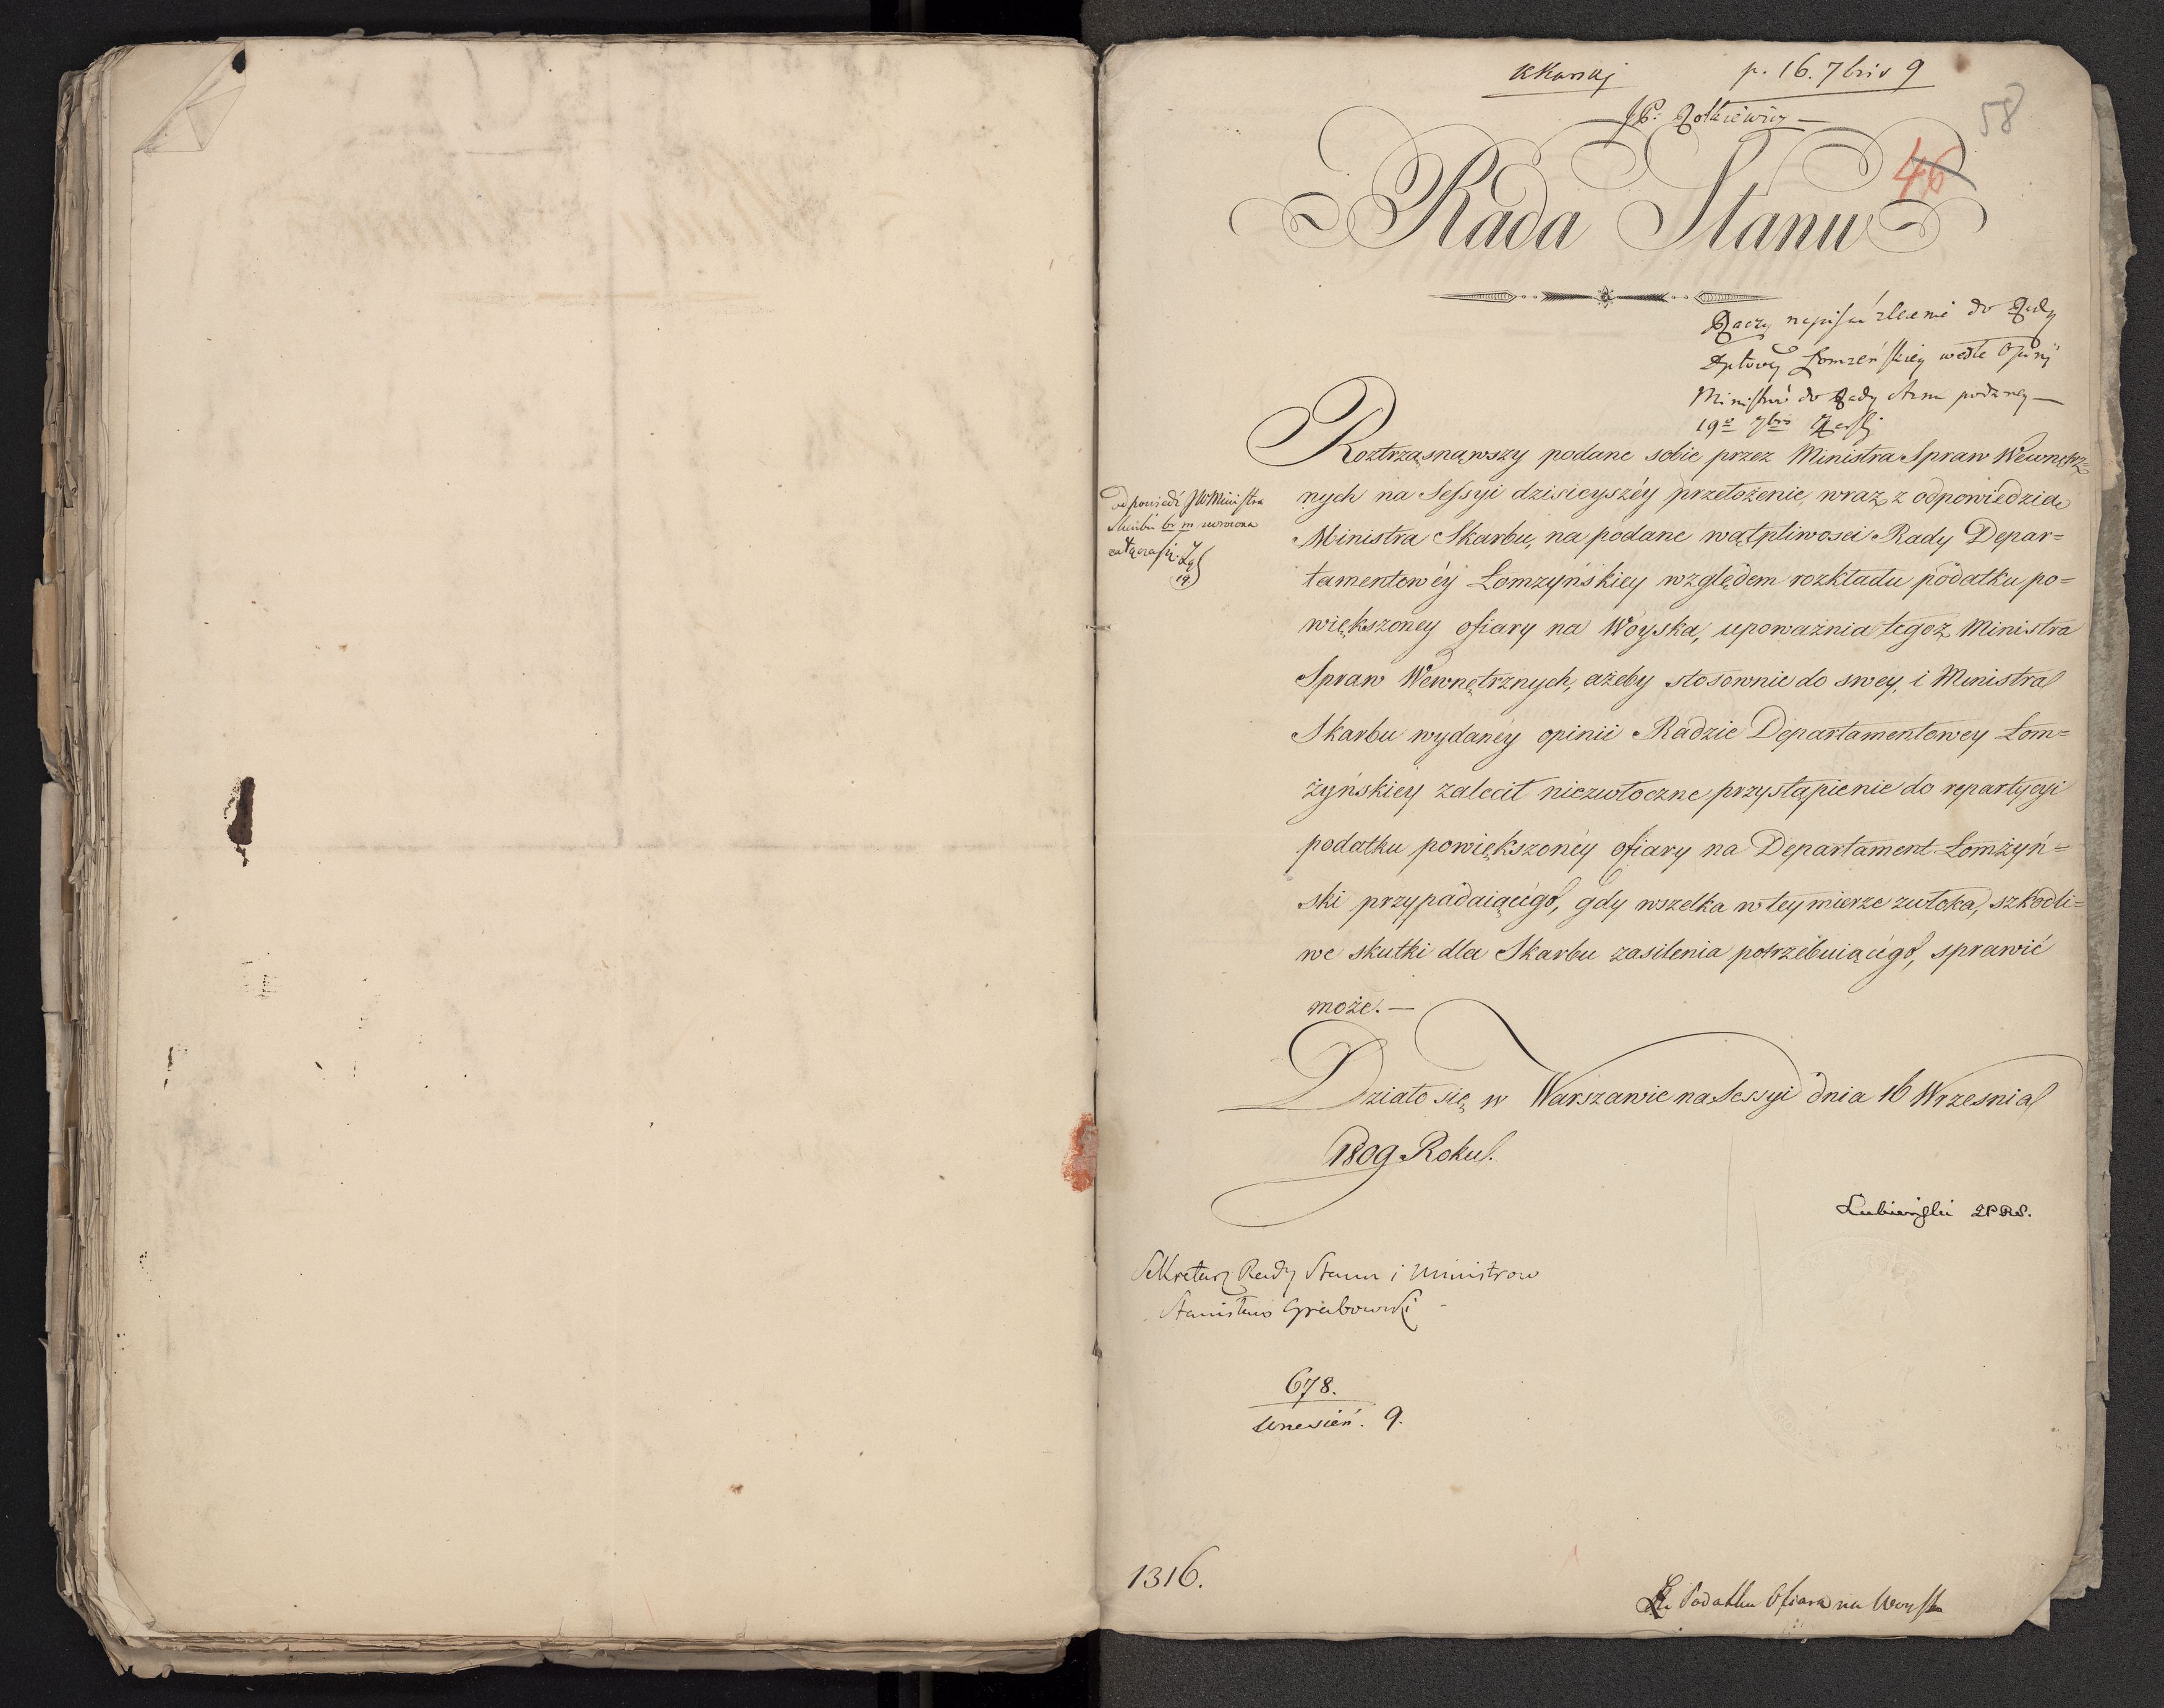 p. 16. 7bris 9
58
46
Rada Stanu
do Rady
Łomżeńskiey wedle Opinij
Ministrów do Rady Stanu podaney —
19º 7bris
Roztrząsnąwszy podane sobie przez Ministra Spraw Wewnętrz=
nych na Sessyi dzisieyszéy przełożenie, wraz z odpowiedzią
Ministra Skarbu, na podane wątpliwosci Rady Depar=
tamentowéy Łomżyńskiey względem rozkładu podatku po=
większoney ofiary na Woyska, upoważnia tegoż Ministra
Spraw Wewnętrznych, ażeby stosownie do swey, i Ministra
Skarbu wydaney opinii Radzie Departamentowey Łom=
żyńskiey zalecił niezwłoczne przystąpienie do repartycyi
podatku powiększonéy ofiary na Departament Łomżyń=
ski przypadaiącégo, gdy wszelka w tey mierze zwłoka, szkodli=
we skutki dla Skarbu zasilenia potrzebuiącégo, sprawić
może. —
odpowiedź JWMinistra
Skarbu
19
Działo się w Warszawie na Sessyi dnia 16 Wrzesnia
1809 Roku.
Lubieński
Sekretarz Rady Stanu i Ministrow
Stanisław Grabowski
678.
Wrzesień. 9.
1316.
Podatku Ofiara na Woysko